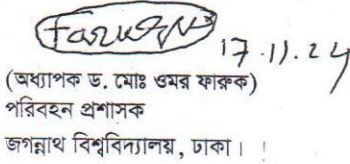 17.11.24
(অধ্যাপক ড. মোঃ ওমর ফারুক)
পরিবহন প্রশাসক
জগন্নাথ বিশ্ববিদ্যালয়, ঢাকা।